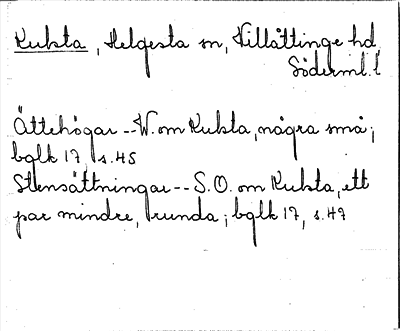 Kulsta, Helgesta sn, Villåttinge hd,
Söderml. l
Ättehögar -- W. om Kulsta, några små;
bglk 17, s. 45
Stensättningar -- S.O. om Kulsta, ett
par mindre, runda; bglk 17, s. 47